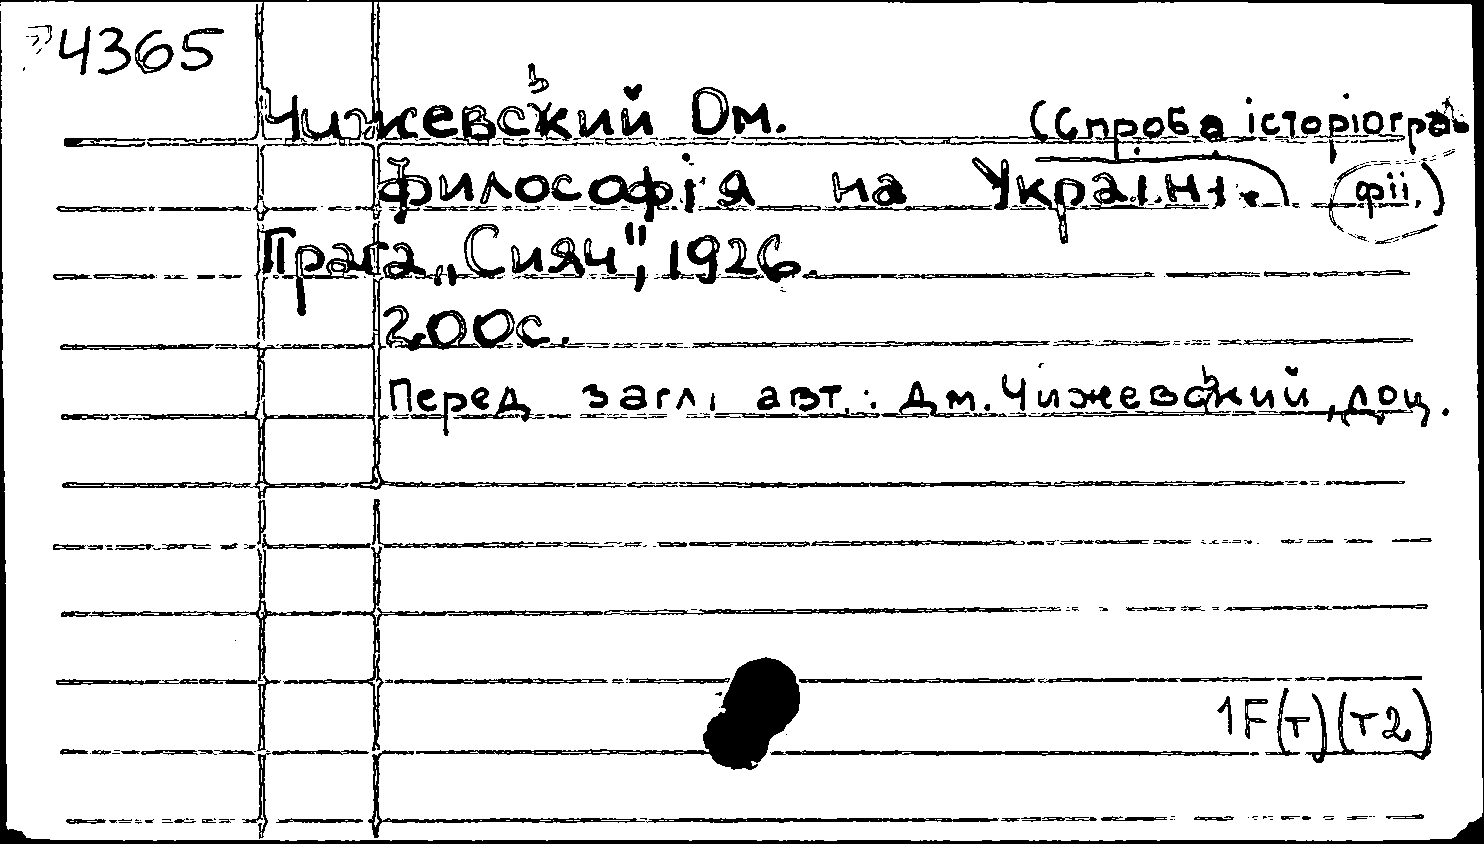 4365
Чижевський Dм. (Спроба історіогра-
Философія на Україні. фії.)
Прага „Сияч", 1926.
200с.
Перед загл. авт.: Дм. Чижевський, доц.
1F(т)(т2)